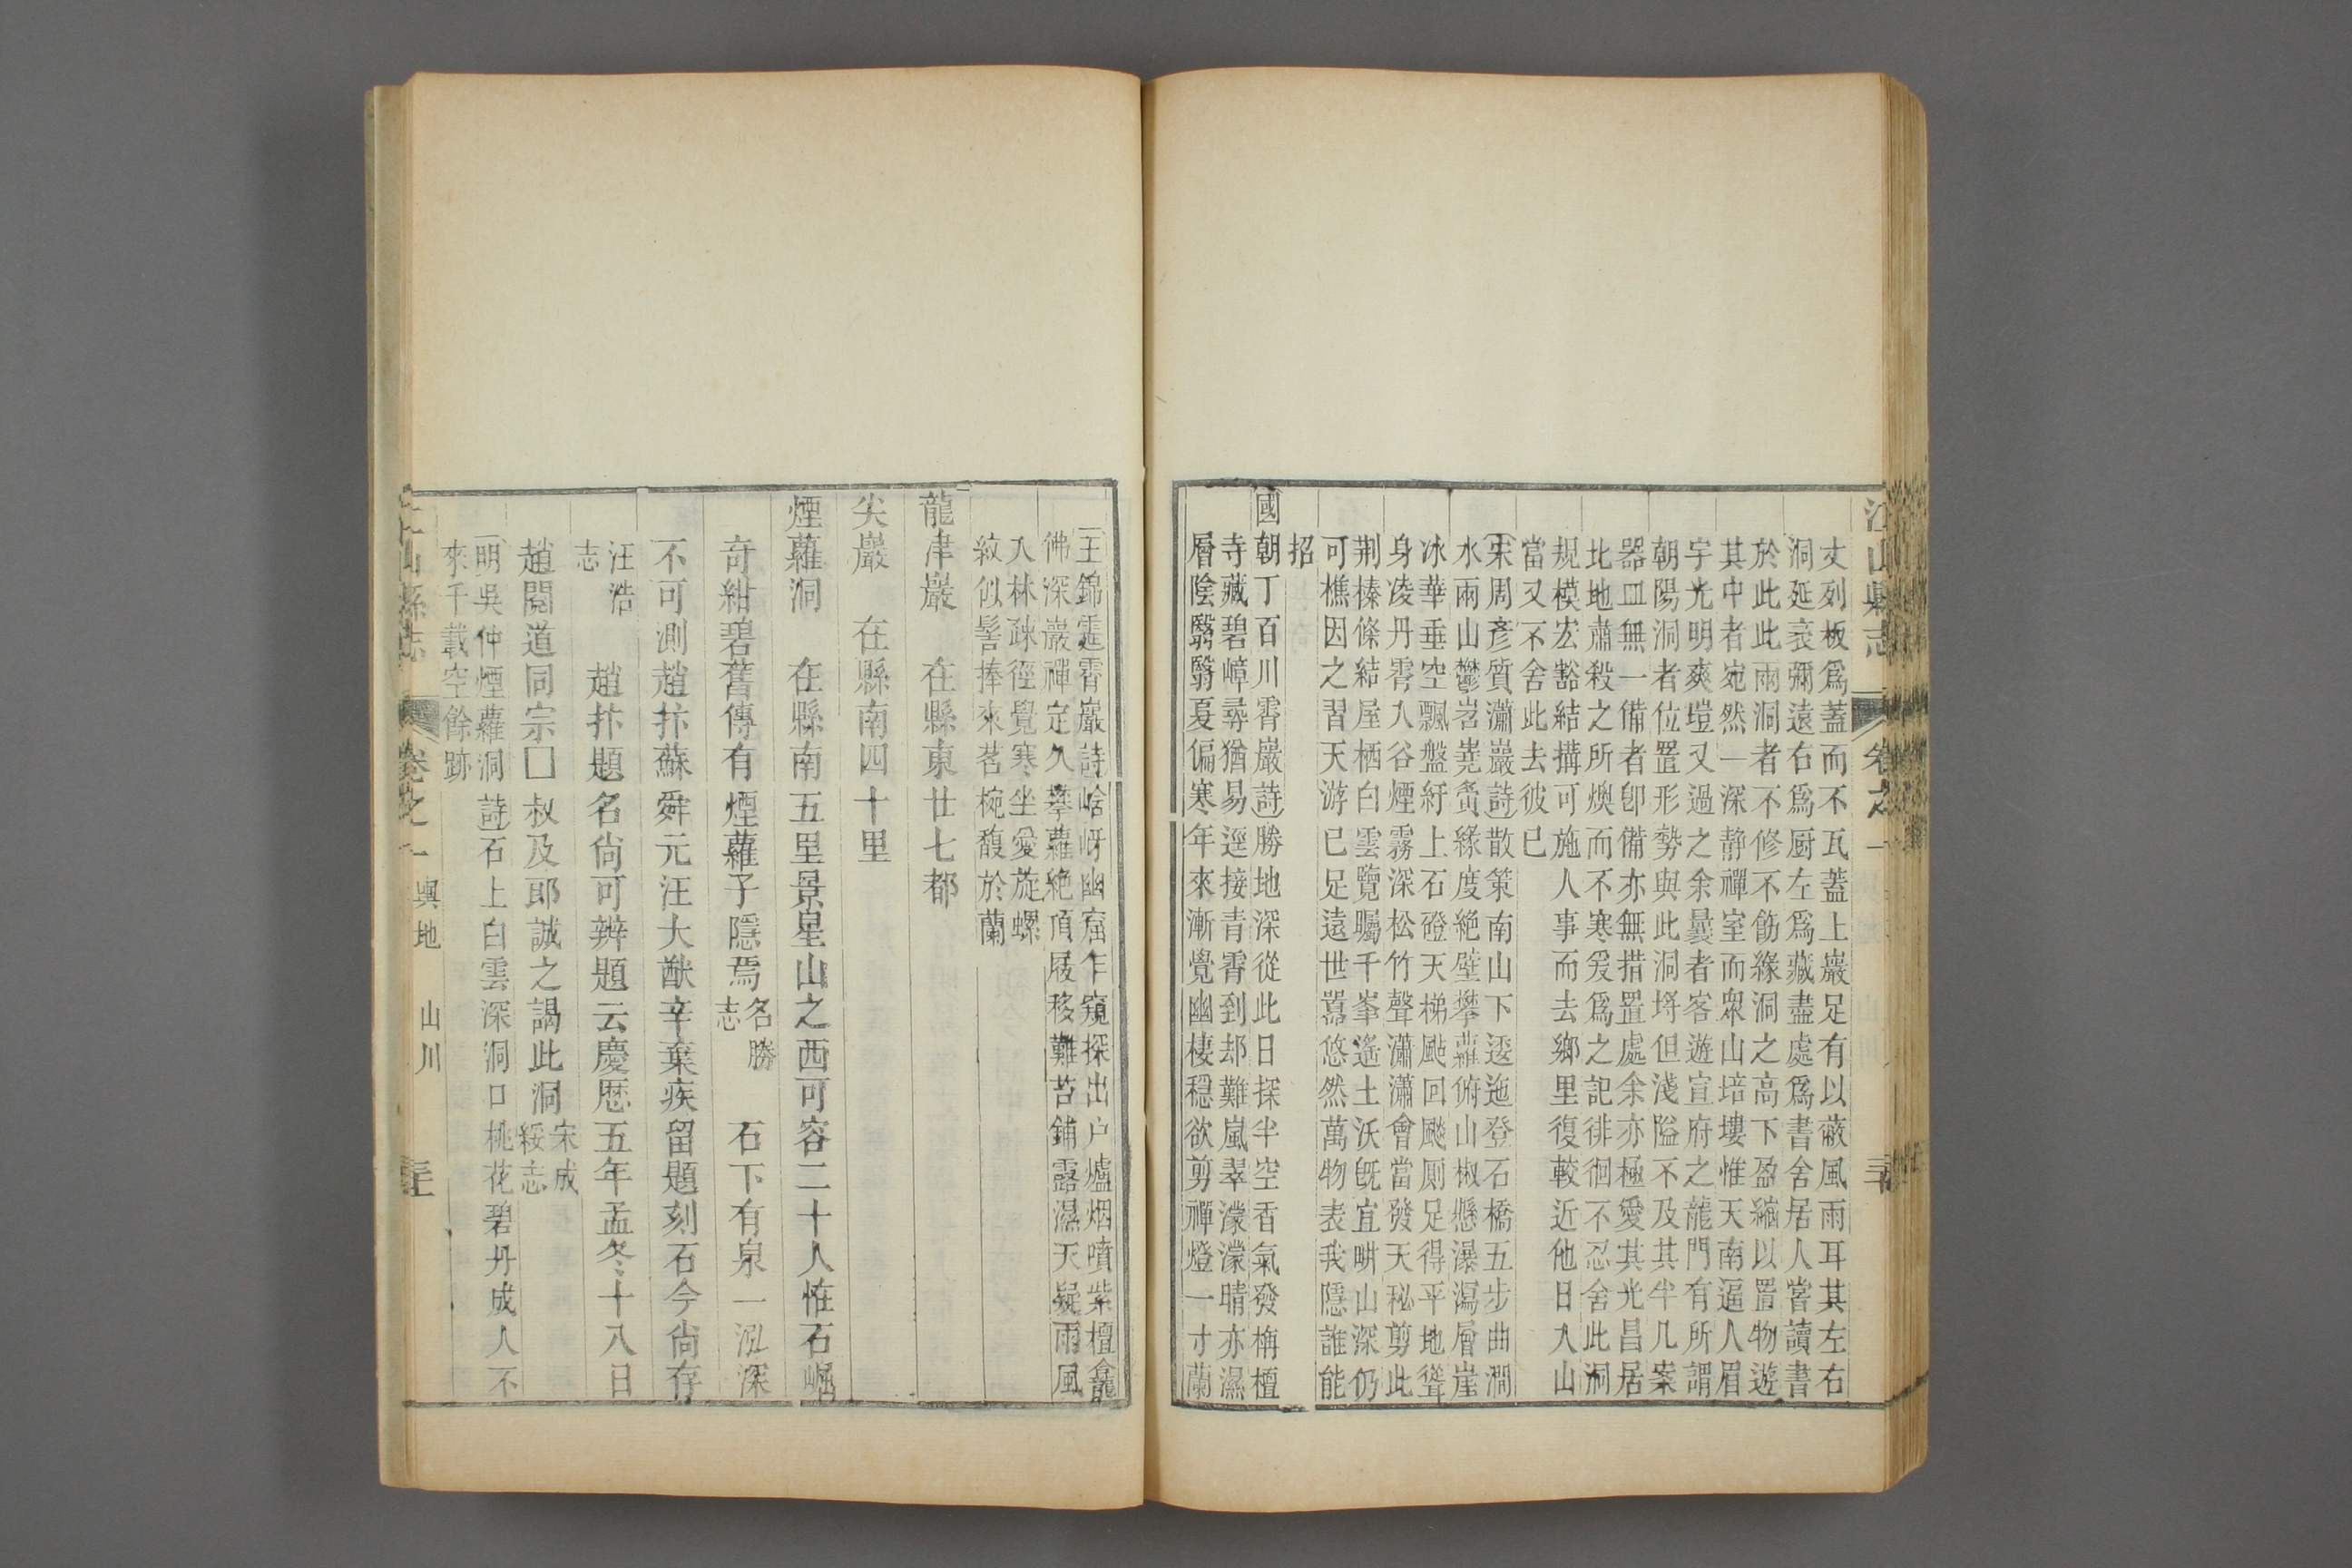 江山縣志
卷之一
丈列板爲蓋而不瓦蓋上巖足有以蔽風雨耳其左右
洞延袤彌遠右爲厨左爲藏盡處爲書舍居人嘗讀書
於此此雨洞者不修不飭緣洞之高下盈縮以置物遊
其中者宛然一深静禪室而眾山培塿惟天南逼人眉
宇光明爽塏又過之余曩者客遊宣府之龍門有所謂
朝陽洞者位罝形勢與此洞埒但淺隘不及其半几案
器皿無一備者卽備亦無措置處余亦極愛其光昌居
北地肅殺之所燠而不寒爰爲之記徘徊不忍舍此洞
規模宏豁結搆可施人事而去鄉里復較近他日入山
當又不舍此去彼已
宋周彥質瀟巖詩散策南山下逶迤登石橋五步曲澗
水兩山鬱岩嶤夤緣度絕壁攀蘿俯山椒懸瀑瀉層崖
冰華垂空飄盤紆上石磴天梯颭回飈厠足得平地聳
身凌丹霄入谷煙霧深松竹聲瀟瀟會當發天秘剪此
荆榛條結屋栖白雲覽矚千峯遙土沃旣宜畊山深仍
可樵因之習天游已足遠世囂悠然萬物表我隱誰能
招
國朝丁百川霄巖詩勝地深從此日探半空香氣發栴檀
寺藏碧嶂尋猶易逕接青霄到却難嵐翠濛濛晴亦濕
層陰翳翳夏偏寒年來漸覺幽棲穩欲剪禪燈一寸蘭
王錦霆霄巖詩岈幽窟乍窺探出户爐烟噴紫檀龕
佛深巖禪定久攀蘿絶頂屐移難苔鋪露濕天疑雨風
入林疎徑覺寒坐愛旋螺
紋似髻捧來茗椀馥於蘭
龍津巖 在縣東廿七都
尖巖 在縣南四十里
煙蘿洞 在縣南五里景星山之西可容二十人惟石崛
奇紺碧舊傳有煙蘿子隱焉名勝志 石下有泉一泓深
不可測趙抃蘇舜元汪大猷辛棄疾留題刻石今尙存
汪浩志 趙抃題名尙可辨題云慶厯五年孟冬十八日
趙閱道同宗□叔及耶誠之謁此洞宋成綏志
明吳仲煙蘿洞詩石上白雲深洞口桃花碧丹成人不
來千載空餘跡
山縣志
卷之一 輿地 山川